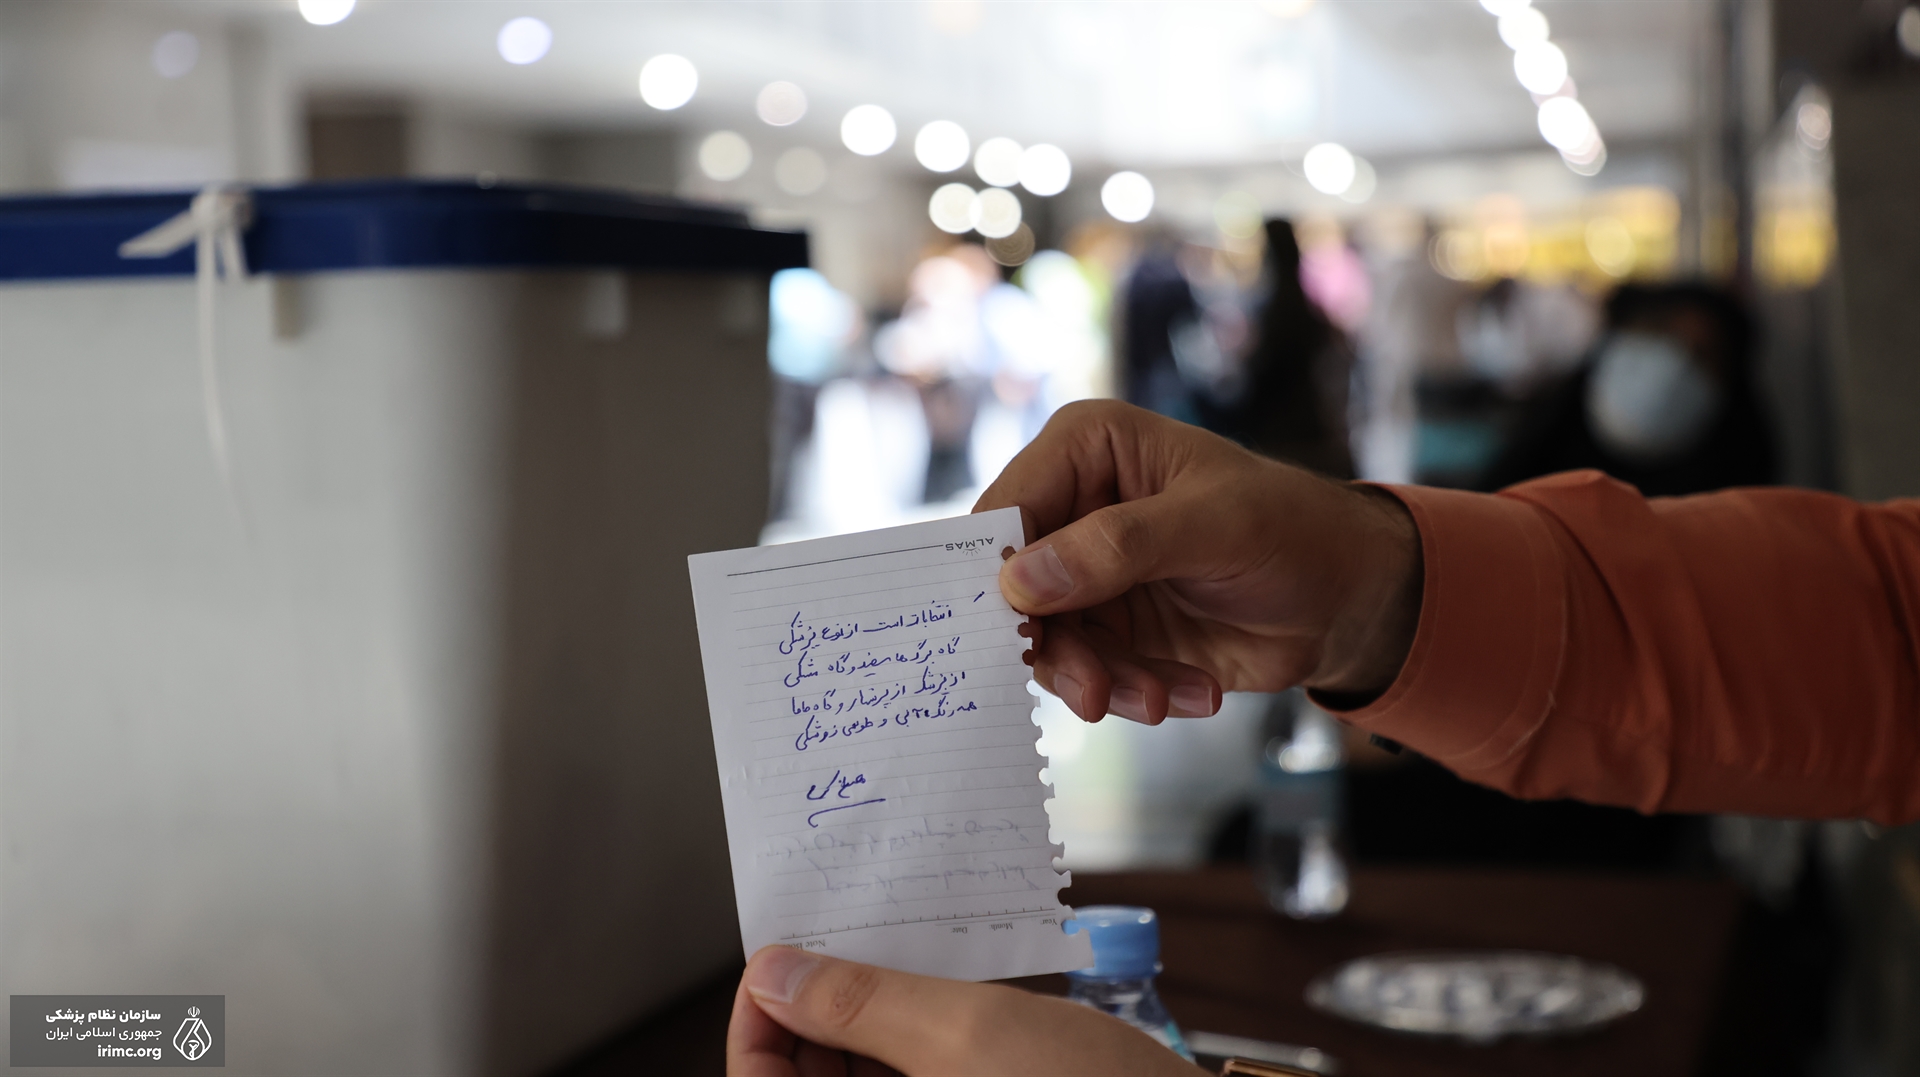 ALMAS
انتخابات است از نوع پزشکی
گاه برگ ها سفید و گاه مشکی
از پزشک از پرستار و گاه ماما
همه رنگ آبی و طوسی زرشکی
Year
Month
Date
Note Book
سازمان نظام پزشکی
جمهوری اسلامی ایران
irimc.org